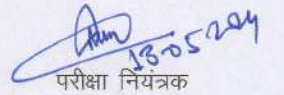 13-05-2024
परीक्षा नियंत्रक